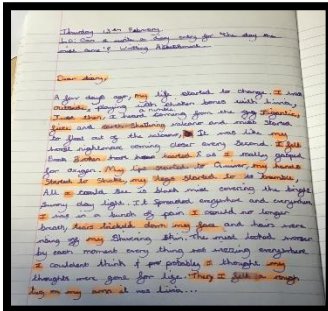 Thursday 13th February
L.O: Can I write a diary entry for the day the mist came? Writing Assessment.
Dear diary,
A few days ago, my life started to change. I was
outside, playing with chicken bones with Livia,
Just then, I heard a rumble coming from the Gigantic,
and earth-shattering volcano and mist started
to float out of the volcano, It was like my
worst nightmare coming closer every second. I felt
I really gasped
for oxygen. My lips started to Quiver, my hands
Started to Shake, my legs Started to to tremble,
All I could see is black mist covering the bright
Sunny day light. It Spreaded everywhere and everywhere
I was in a bunch of pain I could no longer
breath, tears trickled down my face and hairs were
rising off my Shivering Skin. The mist looked worser
by each moment every thing, not wetting everywhere
I couldent think I thought my
thoughts were gone for life. Then I felt a rough
hug on my arm it was Livia...